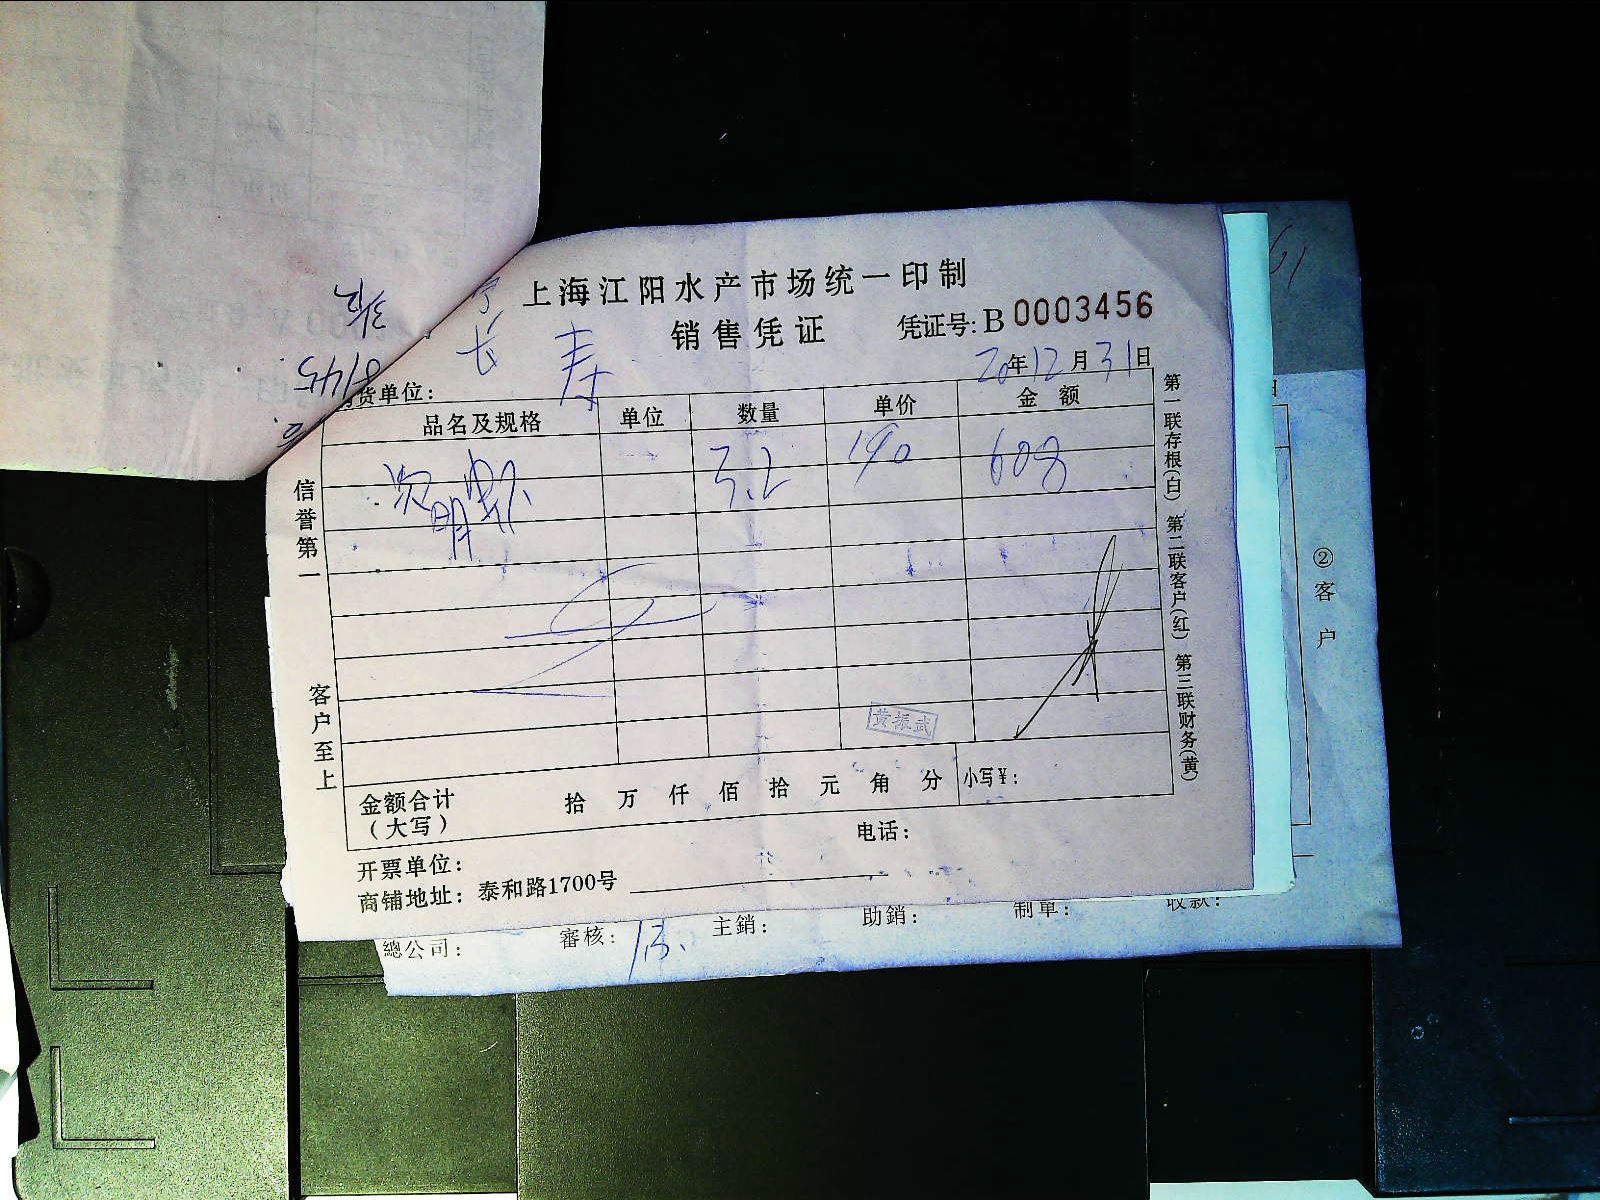 上海江阳水产市场统一印制
销售凭证
凭证号: B 0003456
长寿
20年12月31日
货单位:
品名及规格 单位 数量 单价 金额
3.2 190 608
信誉第一
客户至上
黄振武
金额合计 拾 万 仟 佰 拾 元 角 分 小写¥:
(大写)
电话:
开票单位:
商铺地址: 泰和路1700号
第一联存根(白) 第二联客户(红) 第三联财务(黄)
②客户
總公司: 審核: 主銷: 助銷: 制單: 收款: